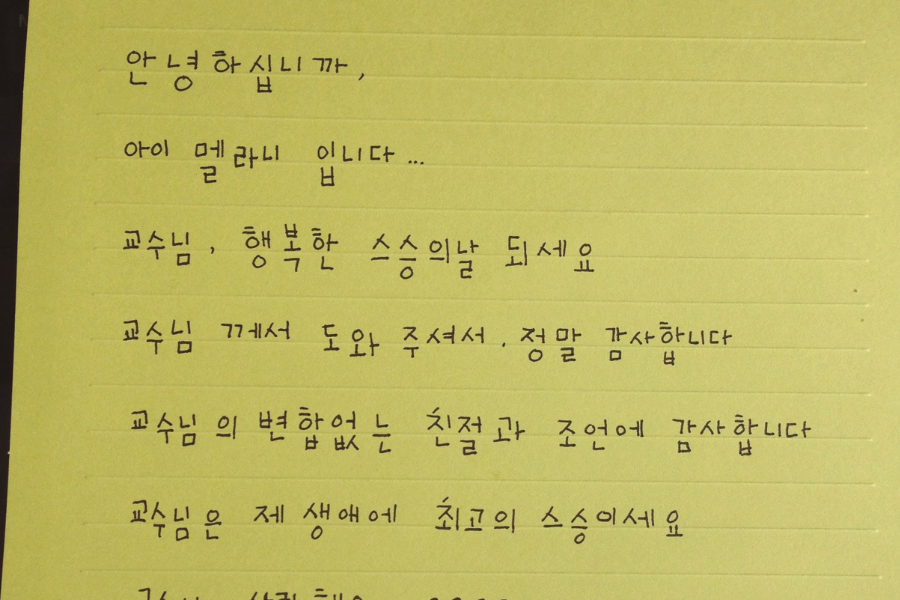 안녕하십니까,
아이 멜라니 입니다...
교수님, 행복한 스승의날 되세요
교수님 께서 도와 주셔서, 정말 감사합니다
교수님 의 변함없는 친절과 조언에 감사합니다
교수님은 제 생애에 최고의 스승이세요